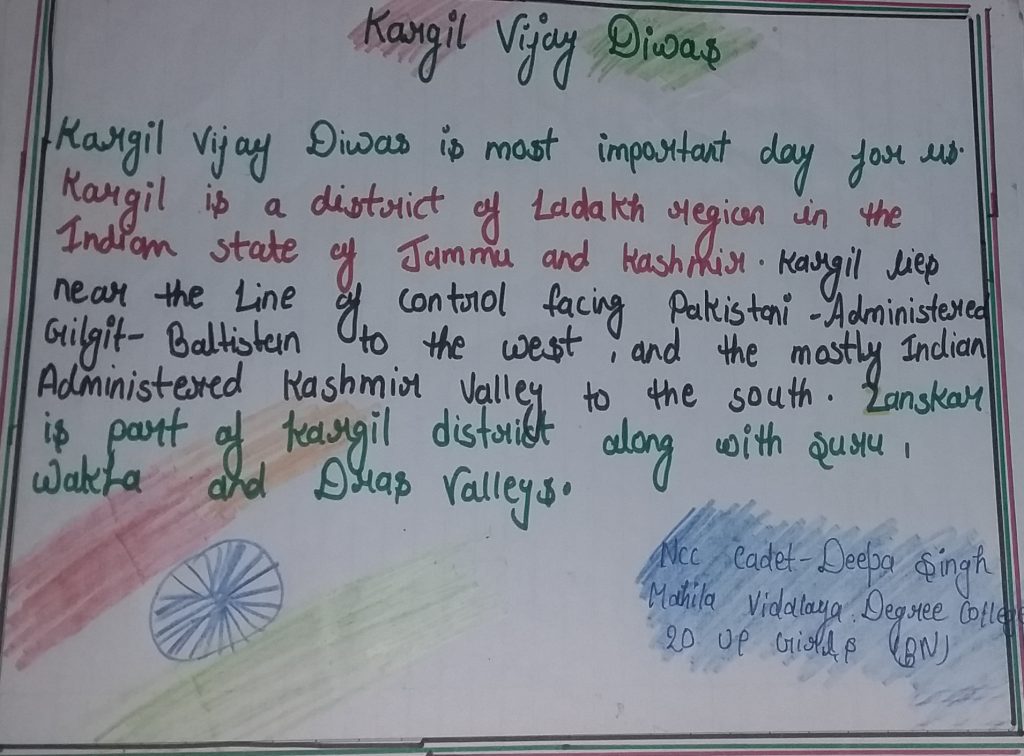 Kargil Vijay Diwas
Kargil Vijay Diwas is most important day for us.
Kargil is a district of Ladakh region in the
Indian state of Jammu and Kashmir. Kargil lies
near the Line of control facing Pakistani-Administered
Gilgit-Baltistan to the west, and the mostly Indian
Administered Kashmir Valley to the south. Zanskar
is part of Kargil district along with Suru,
Wakha and Dras Valleys.
NCC Cadet-Deepa Singh
Mahila Vidalaya Degree College
20 UP Girls (BN)